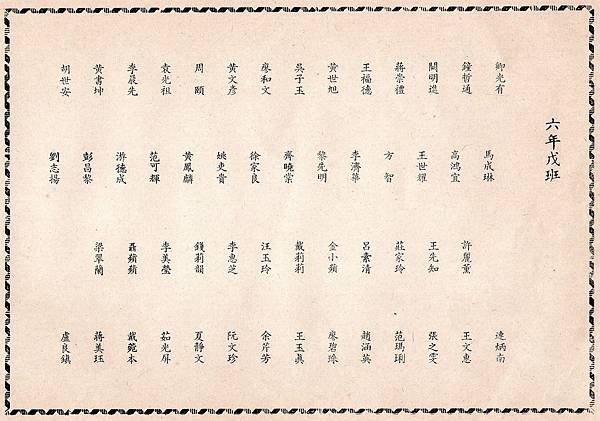 六年戊班
鄭光有
鐘哲通
關明進
蔣崇禮
王福德
黃世旭
吳子玉
廖和文
黃文彥
周頤
袁光祖
李晨先
黃書坤
胡世安
馬成琳
高鴻宜
王世耀
方智
李濟華
黎先明
齊曉棠
徐家良
姚史貴
黃鳳麟
范可輝
游德成
彭昌黎
劉志揚
許麗薰
王先知
莊家玲
呂素清
金小蘋
戴莉莉
汪玉玲
李惠芝
錢莉韻
李美瑩
聶蘋蘋
梁翠蘭
逄炳南
王文惠
張之雯
范瑪琍
趙涵英
廖碧珠
王玉真
余芹芳
阮文珍
夏靜文
茹光屏
戴鎞本
蔣美珏
盧良鎮